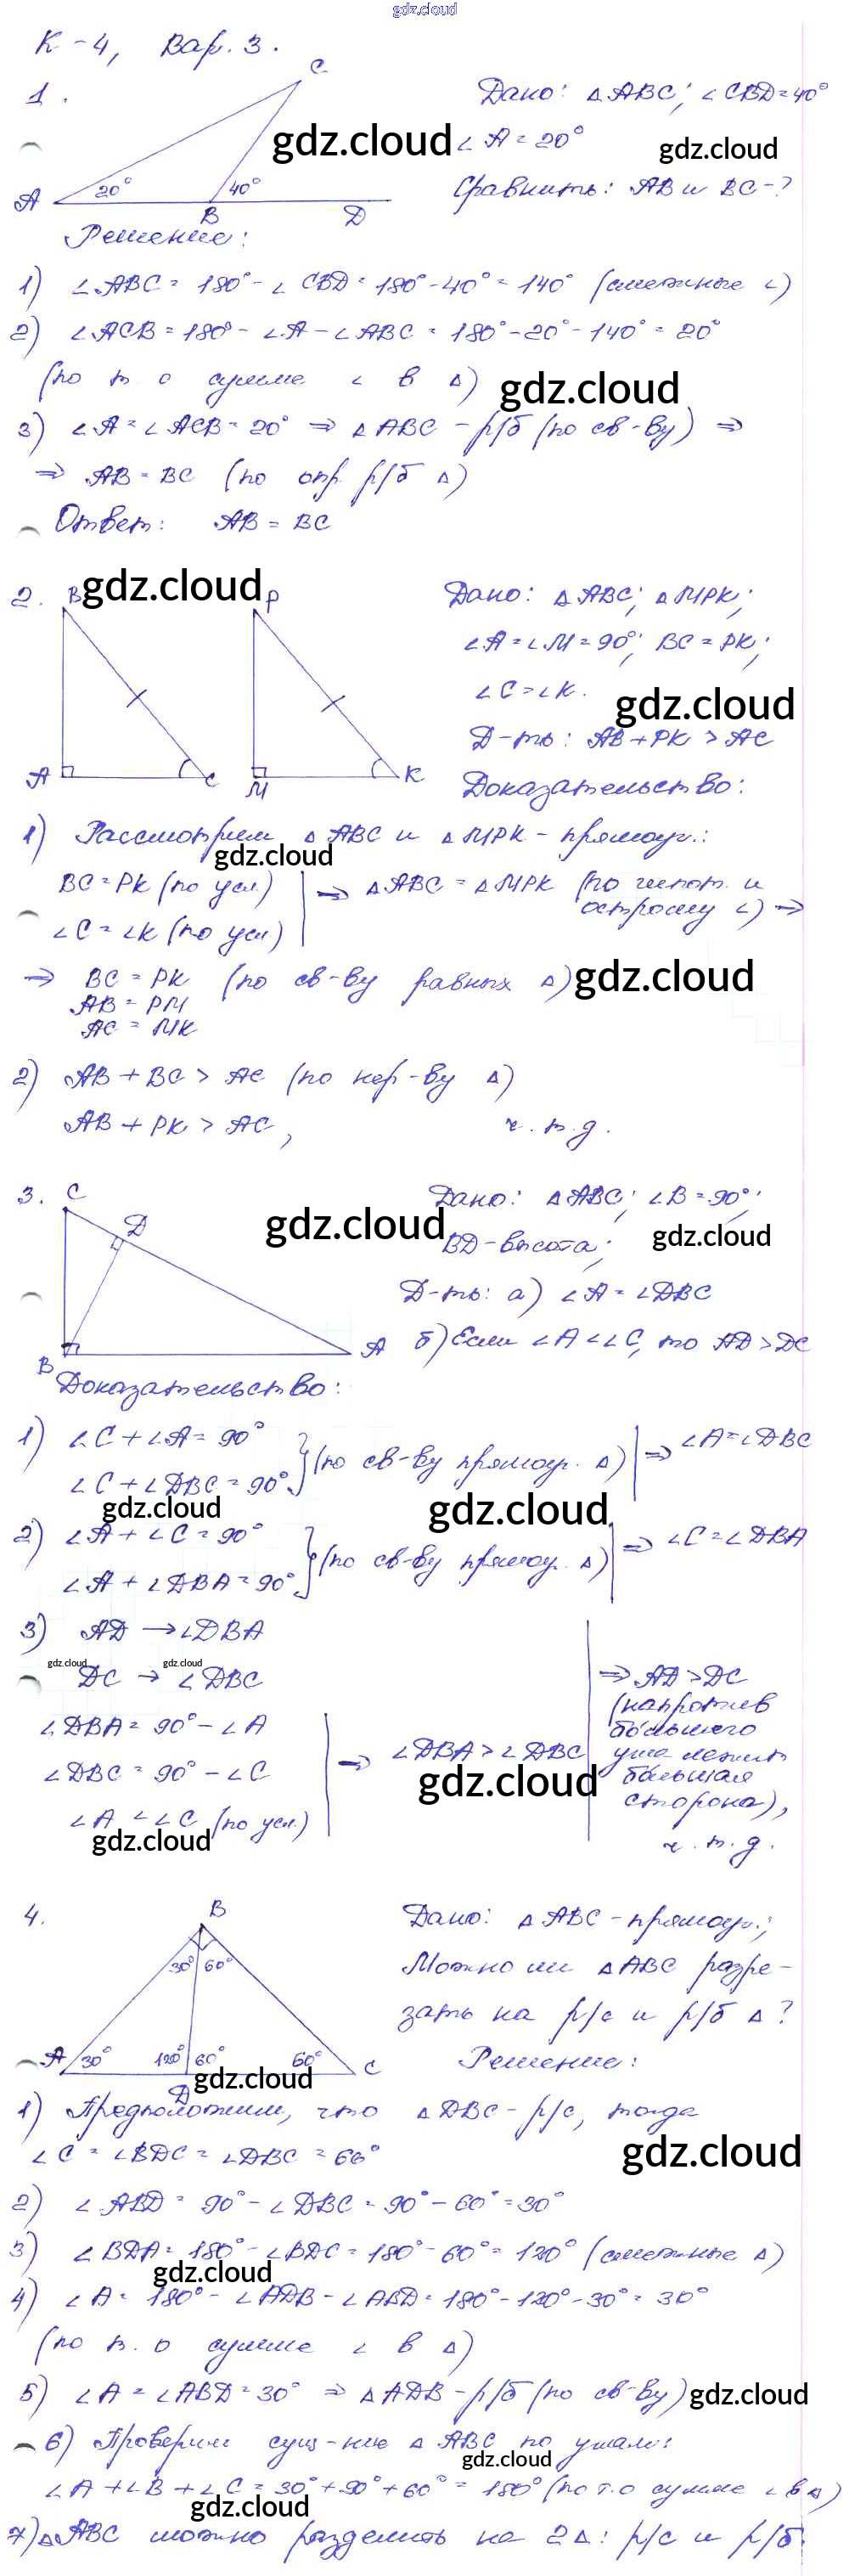 gdz.cloud
К-4, Вар. 3.
1.
C
20°
40°
A
B
D
Дано: △ABC; ∠CBD=40°
gdz.cloud
∠A = 20°
gdz.cloud
Сравнить: AB и BC-?
Решение:
1) ∠ABC = 180° - ∠CBD = 180° - 40° = 140° (смежные ∠)
2) ∠ACB = 180° - ∠A - ∠ABC = 180° - 20° - 140° = 20°
(по т о сумме ∠ в △)
gdz.cloud
3) ∠A = ∠ACB = 20° ⇒ △ABC - р/б (по св-ву) ⇒
⇒ AB = BC (по опр. р/б △)
Ответ: AB = BC
2.
B
gdz.cloud
P
A
C
M
K
Дано: △ABC; △MPK;
∠A = ∠M = 90°; BC = PK;
∠C = ∠K.
gdz.cloud
Д-ть: AB + PK > AC
Доказательство:
1) Рассмотрим △ABC и △MPK - прямоуг.:
gdz.cloud
BC = PK (по усл.)
∠C = ∠K (по усл)
⇒ △ABC = △MPK (по гипот. и
острому ∠) ⇒
⇒ BC = PK (по св-ву равных △)
gdz.cloud
AB = PM
AC = MK
2) AB + BC > AC (по нер-ву △)
AB + PK > AC, ч.т.д.
3.
C
D
B
A
gdz.cloud
Дано: △ABC; ∠B = 90°;
BD - высота;
gdz.cloud
Д-ть: а) ∠A = ∠DBC
б) Если ∠A < ∠C, то AD > DC
Доказательство:
1) ∠C + ∠A = 90°
∠C + ∠DBC = 90°
} (по св-ву прямоуг. △) ⇒ ∠A = ∠DBC
gdz.cloud
gdz.cloud
2) ∠A + ∠C = 90°
∠A + ∠DBA = 90°
} (по св-ву прямоуг. △) ⇒ ∠C = ∠DBA
3) AD → ∠DBA
gdz.cloud
gdz.cloud
DC → ∠DBC
∠DBA = 90° - ∠A
∠DBC = 90° - ∠C
∠A < ∠C (по усл.)
⇒ ∠DBA > ∠DBC
gdz.cloud
gdz.cloud
⇒ AD > DC
(напротив
большего
угла лежит
большая
сторона),
ч.т.д.
4.
B
30°
60°
A
30°
120°
60°
60°
C
D
gdz.cloud
Дано: △ABC - прямоуг.;
Можно ли △ABC разре-
зать на р/с и р/б △?
Решение:
1) Предположим, что △DBC - р/с, тогда
∠C = ∠BDC = ∠DBC = 60°
gdz.cloud
2) ∠ABD = 90° - ∠DBC = 90° - 60° = 30°
3) ∠BDA = 180° - ∠BDC = 180° - 60° = 120° (смежные △)
gdz.cloud
4) ∠A = 180° - ∠ADB - ∠ABD = 180° - 120° - 30° = 30°
(по т. о сумме ∠ в △)
5) ∠A = ∠ABD = 30° ⇒ △ADB - р/б (по св-ву)
gdz.cloud
6) Проверим сущ-ние △ABC по углам:
gdz.cloud
∠A + ∠B + ∠C = 30° + 90° + 60° = 180° (по т. о сумме ∠ в △)
gdz.cloud
7) △ABC можно разделить на 2△: р/с и р/б.